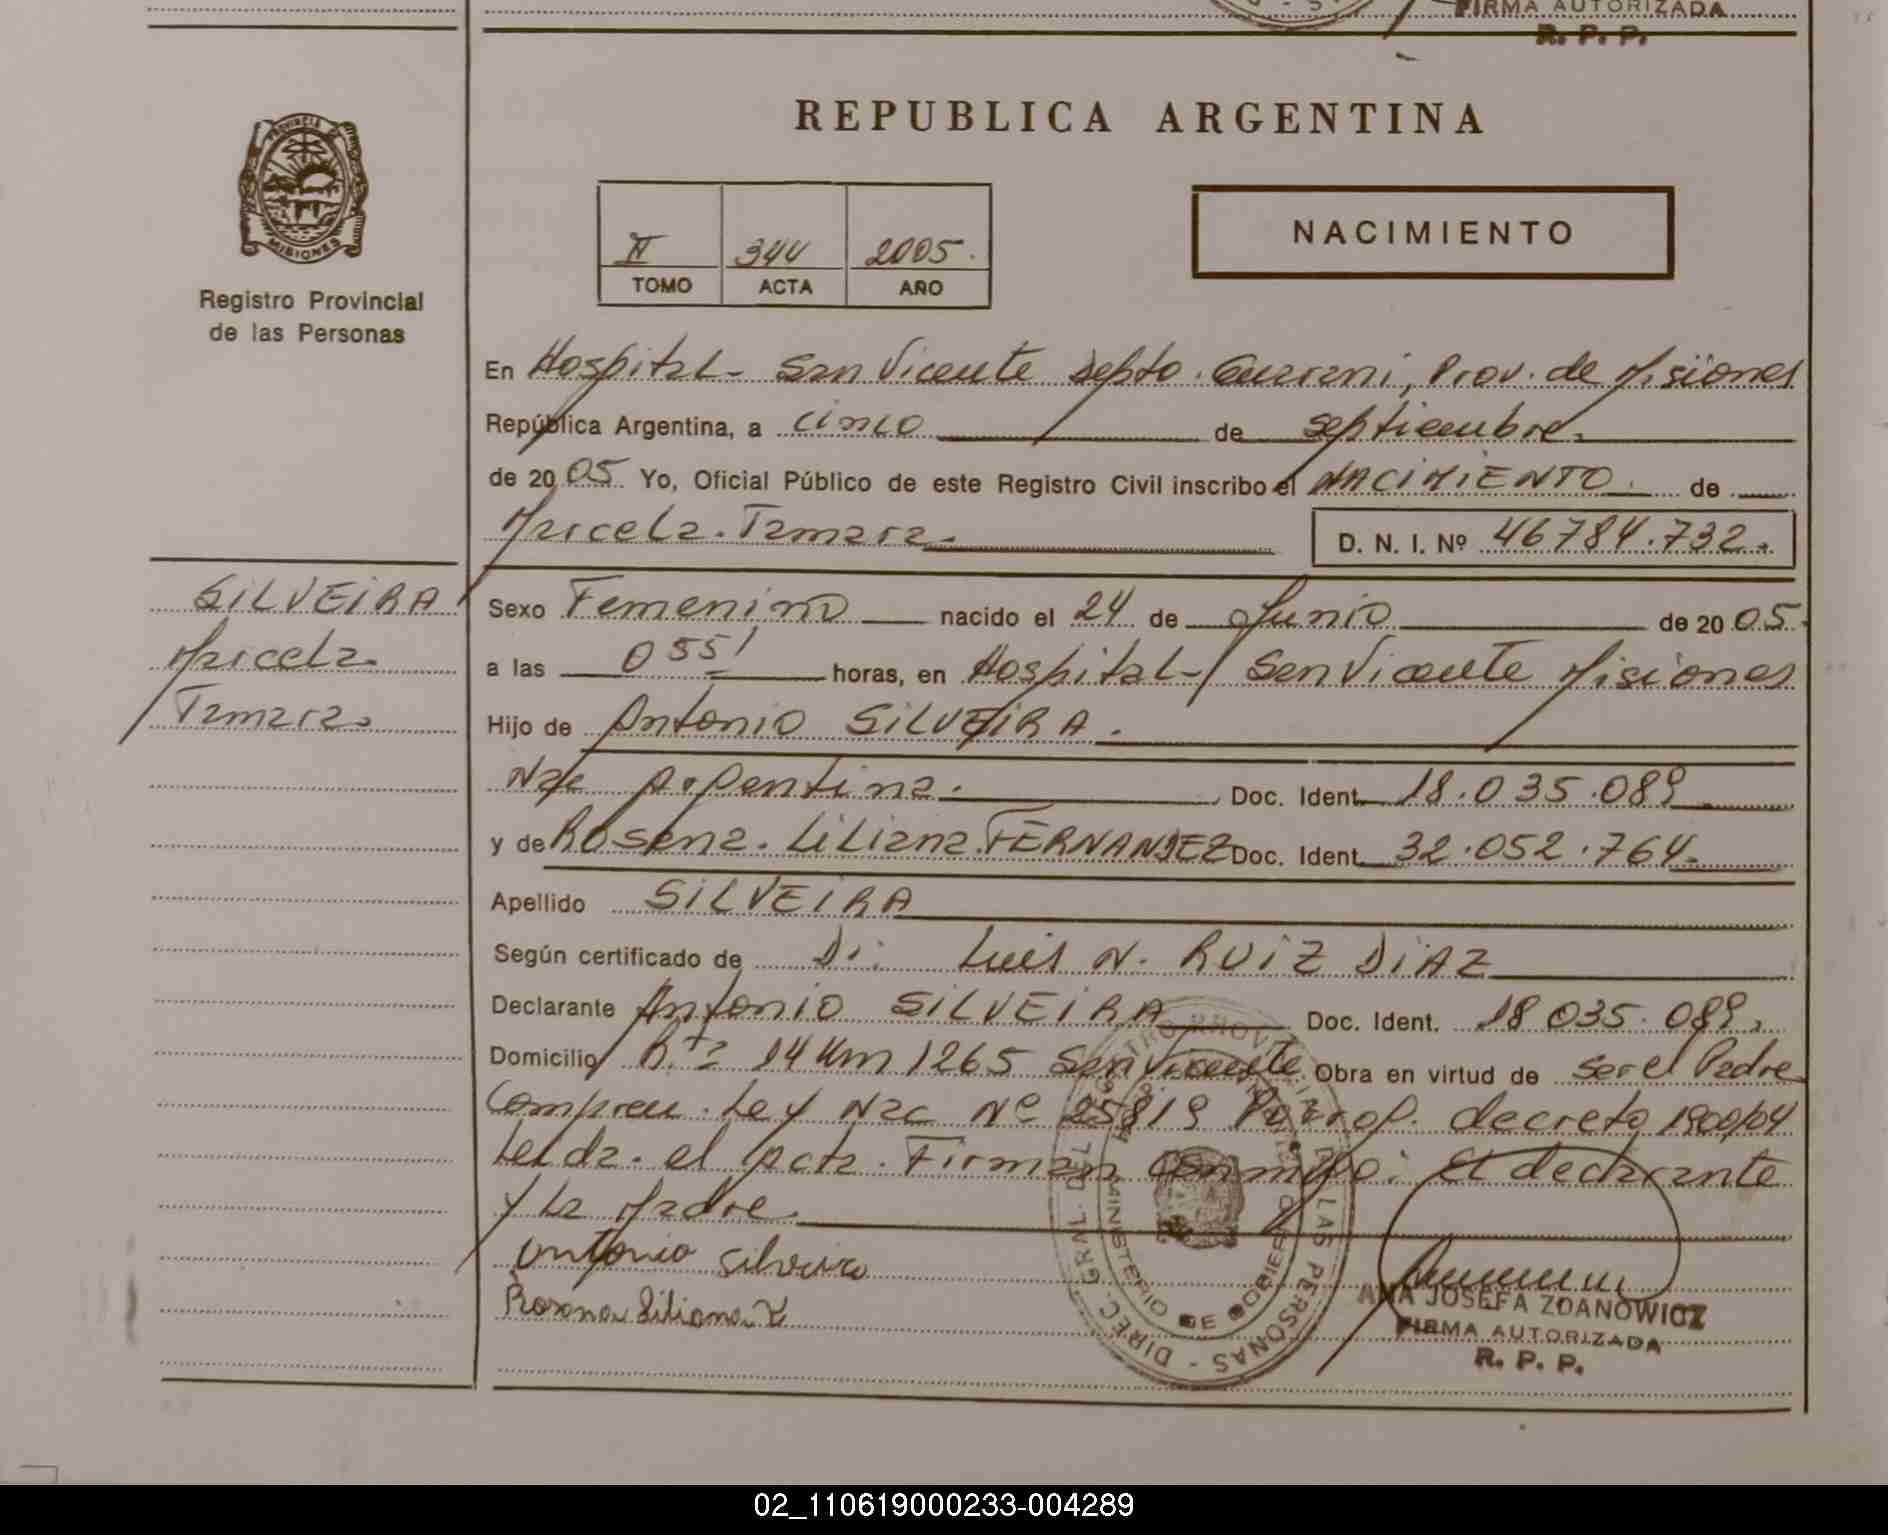 FIRMA AUTORIZADA
R. P. P.
PROVINCIA DE
MISIONES
Registro Provincial
de las Personas
REPUBLICA ARGENTINA
II 344 2005.
TOMO ACTA AÑO
NACIMIENTO
En Hospital - San Vicente Depto. Guarani, Prov. de Misiones
República Argentina, a cinco de septiembre.
de 2005 Yo, Oficial Público de este Registro Civil inscribo el NACIMIENTO. de
Maricela. Tamara. D. N. I. Nº 46784.732.
SILVEIRA
Maricela
Tamara.
Sexo Femenino nacido el 24 de Junio de 2005.
a las 0 55' horas, en Hospital - San Vicente Misiones
Hijo de Antonio SILVEIRA.
Nac Argentina. Doc. Ident. 18.035.089
y de Rosana. Liliana FERNANDEZ Doc. Ident. 32.052.764.
Apellido SILVEIRA
Según certificado de Dr. Luis N. RUIZ DIAZ
Declarante Antonio SILVEIRA Doc. Ident. 18 035.089.
Domicilio R.ta 14 Km 1265 San Vicente. Obra en virtud de ser el Padre
Compren. Ley Nac Nº 25819 Porrog. decreto 1900/04
Leida. el acta. Firman conmigo: El declarante
y La Madre.
Antonio Silveira
Rosana Liliana F
DIREC. GRAL. DEL REGISTRO PROVINCIAL DE LAS PERSONAS
MINISTERIO DE GOBIERNO
ANA JOSEFA ZDANOWICZ
FIRMA AUTORIZADA
R. P. P.
02_110619000233-004289